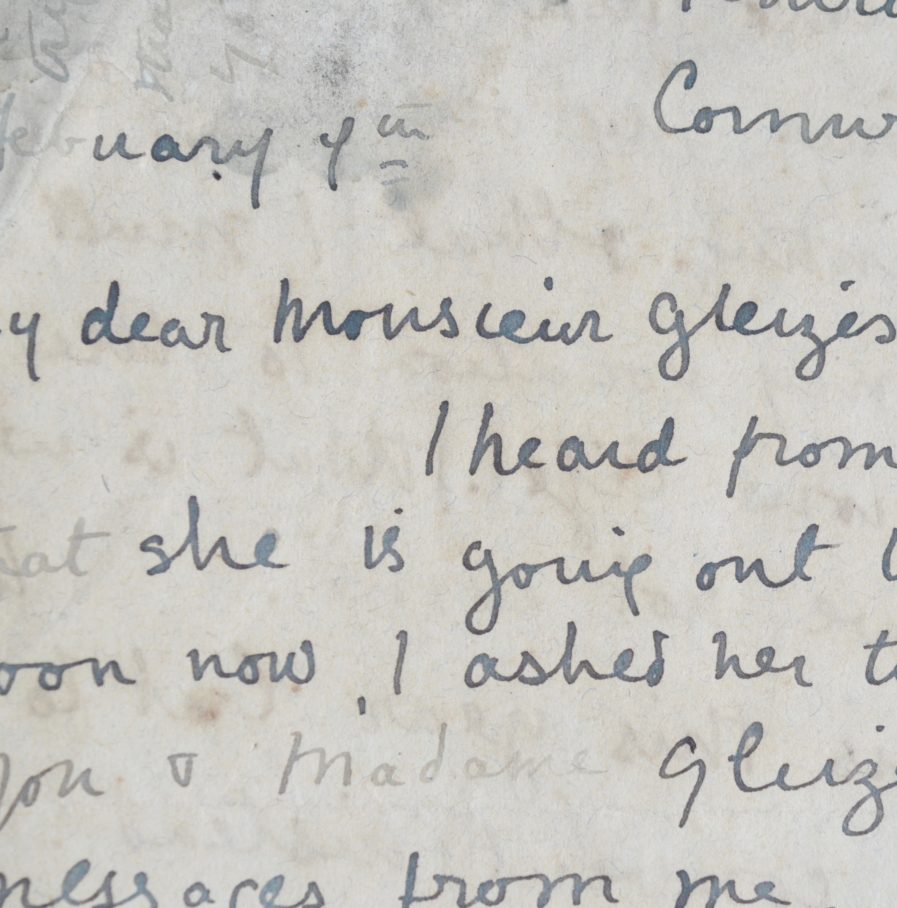 Cornw
February 7th
y dear Monsieur Gleizes
I heard from
hat she is going out t
oon now, I asked her t
you & Madame Gleiz
messages from me